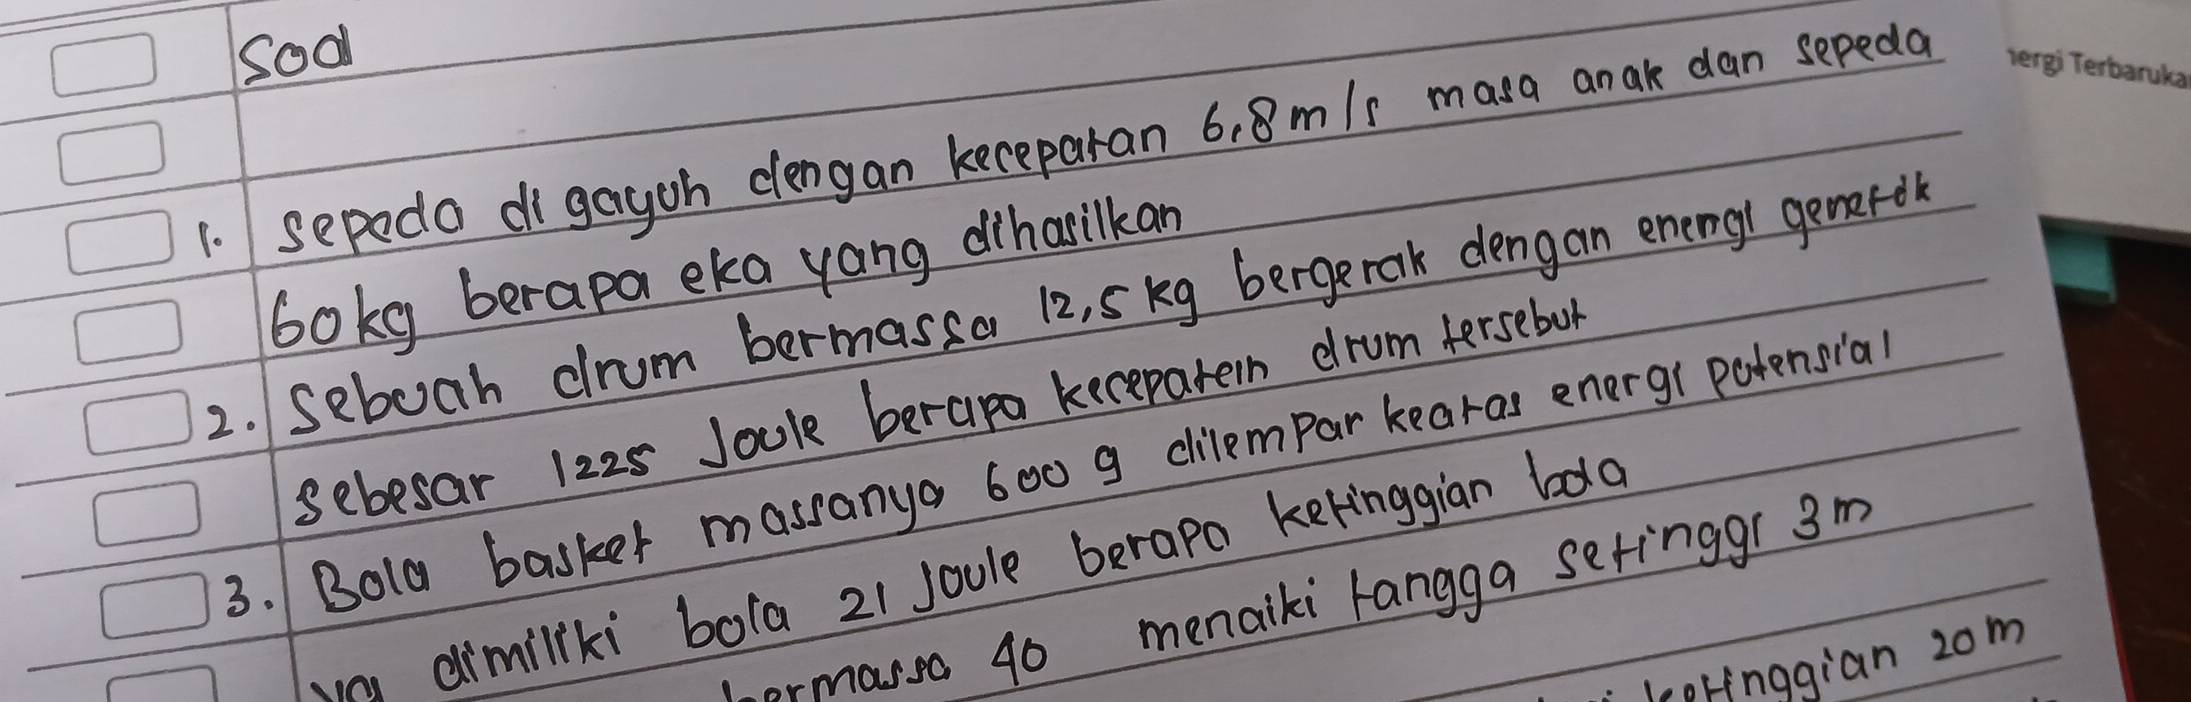 soal
1. sepeda di gayuh dengan kecepatan 6,8 m/s masa anak dan sepeda
60kg berapa eka yang dihasilkan
2. Sebuah drum bermassa 12,5 kg bergerak dengan
sebesar 1225 Joule berapa kecepatan drum tersebut
3. Bola basket massanya 600 g dilempar keatas energi potensial
yg dimiliki bola 21 Joule berapa ketinggian bola
bermassa 40 menaiki tangga setinggi 3m
ketinggian 20m
nergi Terbaruka